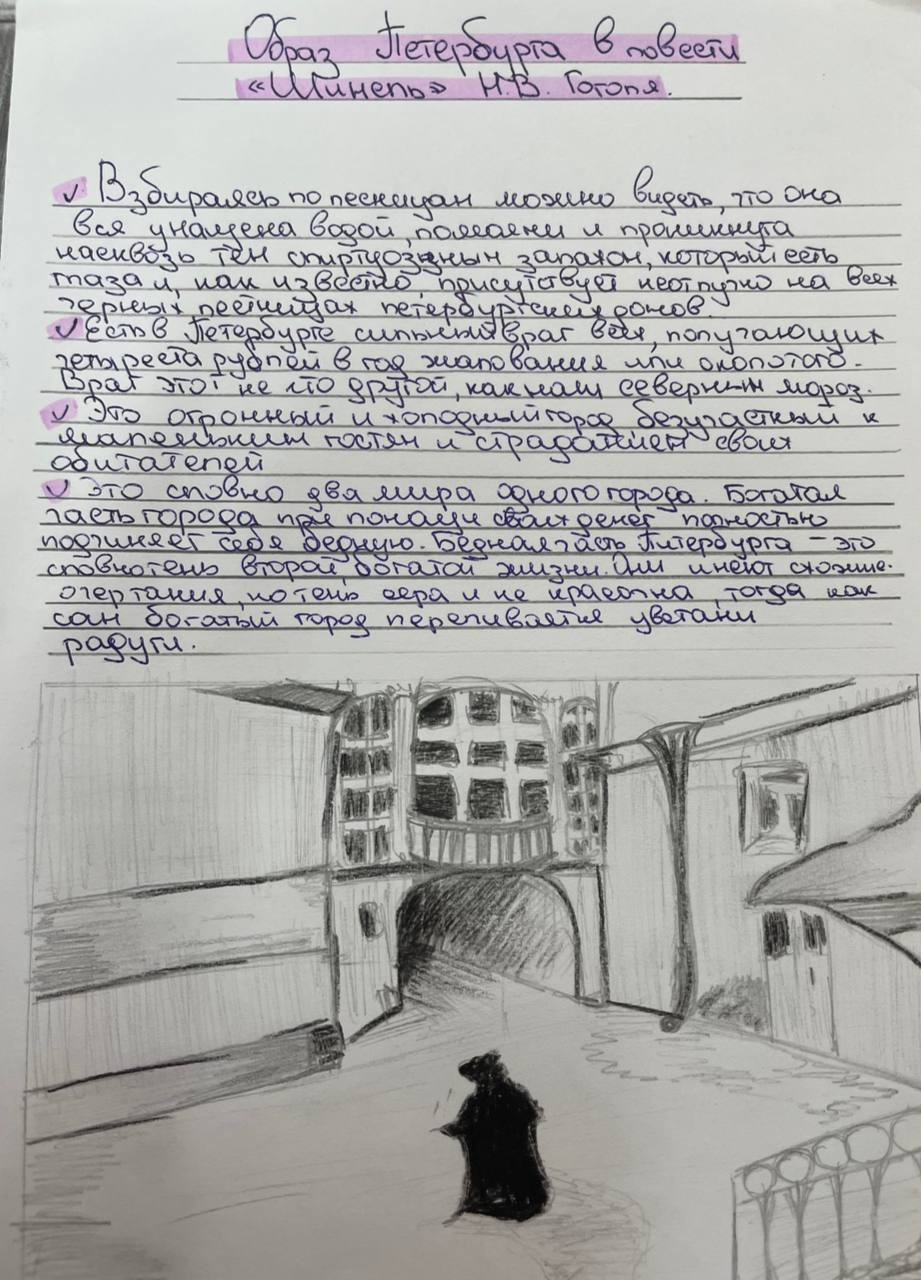 Образ Петербурга в повести
«Шинель» Н.В. Гоголя.
Взбираясь по лесницам можно видеть, что она
вся умащена водой, помаями и проникнута
насквозь тем спиртуозным запахом, который есть
глаза и, как известно, присутствует неотлучно на всех
черных лестницах петербургских домов.
Есть в Петербурге сильный враг всех, получающих
четыреста рублей в год жалования или околотого.
Враг этот не кто другой, как наш северный мороз.
Это огромный и холодный город безучастный к
маленьким гостям и страданием своих
обитателей
Это словно два мира одного города. Богатая
часть города при помощи своих денег полностью
подчиняет себя бедную. Бедная часть Питербурга - это
словно тень второй, богатой жизни. Они имеют схожие
очертания, но тень сера и не красочна, тогда как
сам богатый город переливается цветами
радуги.